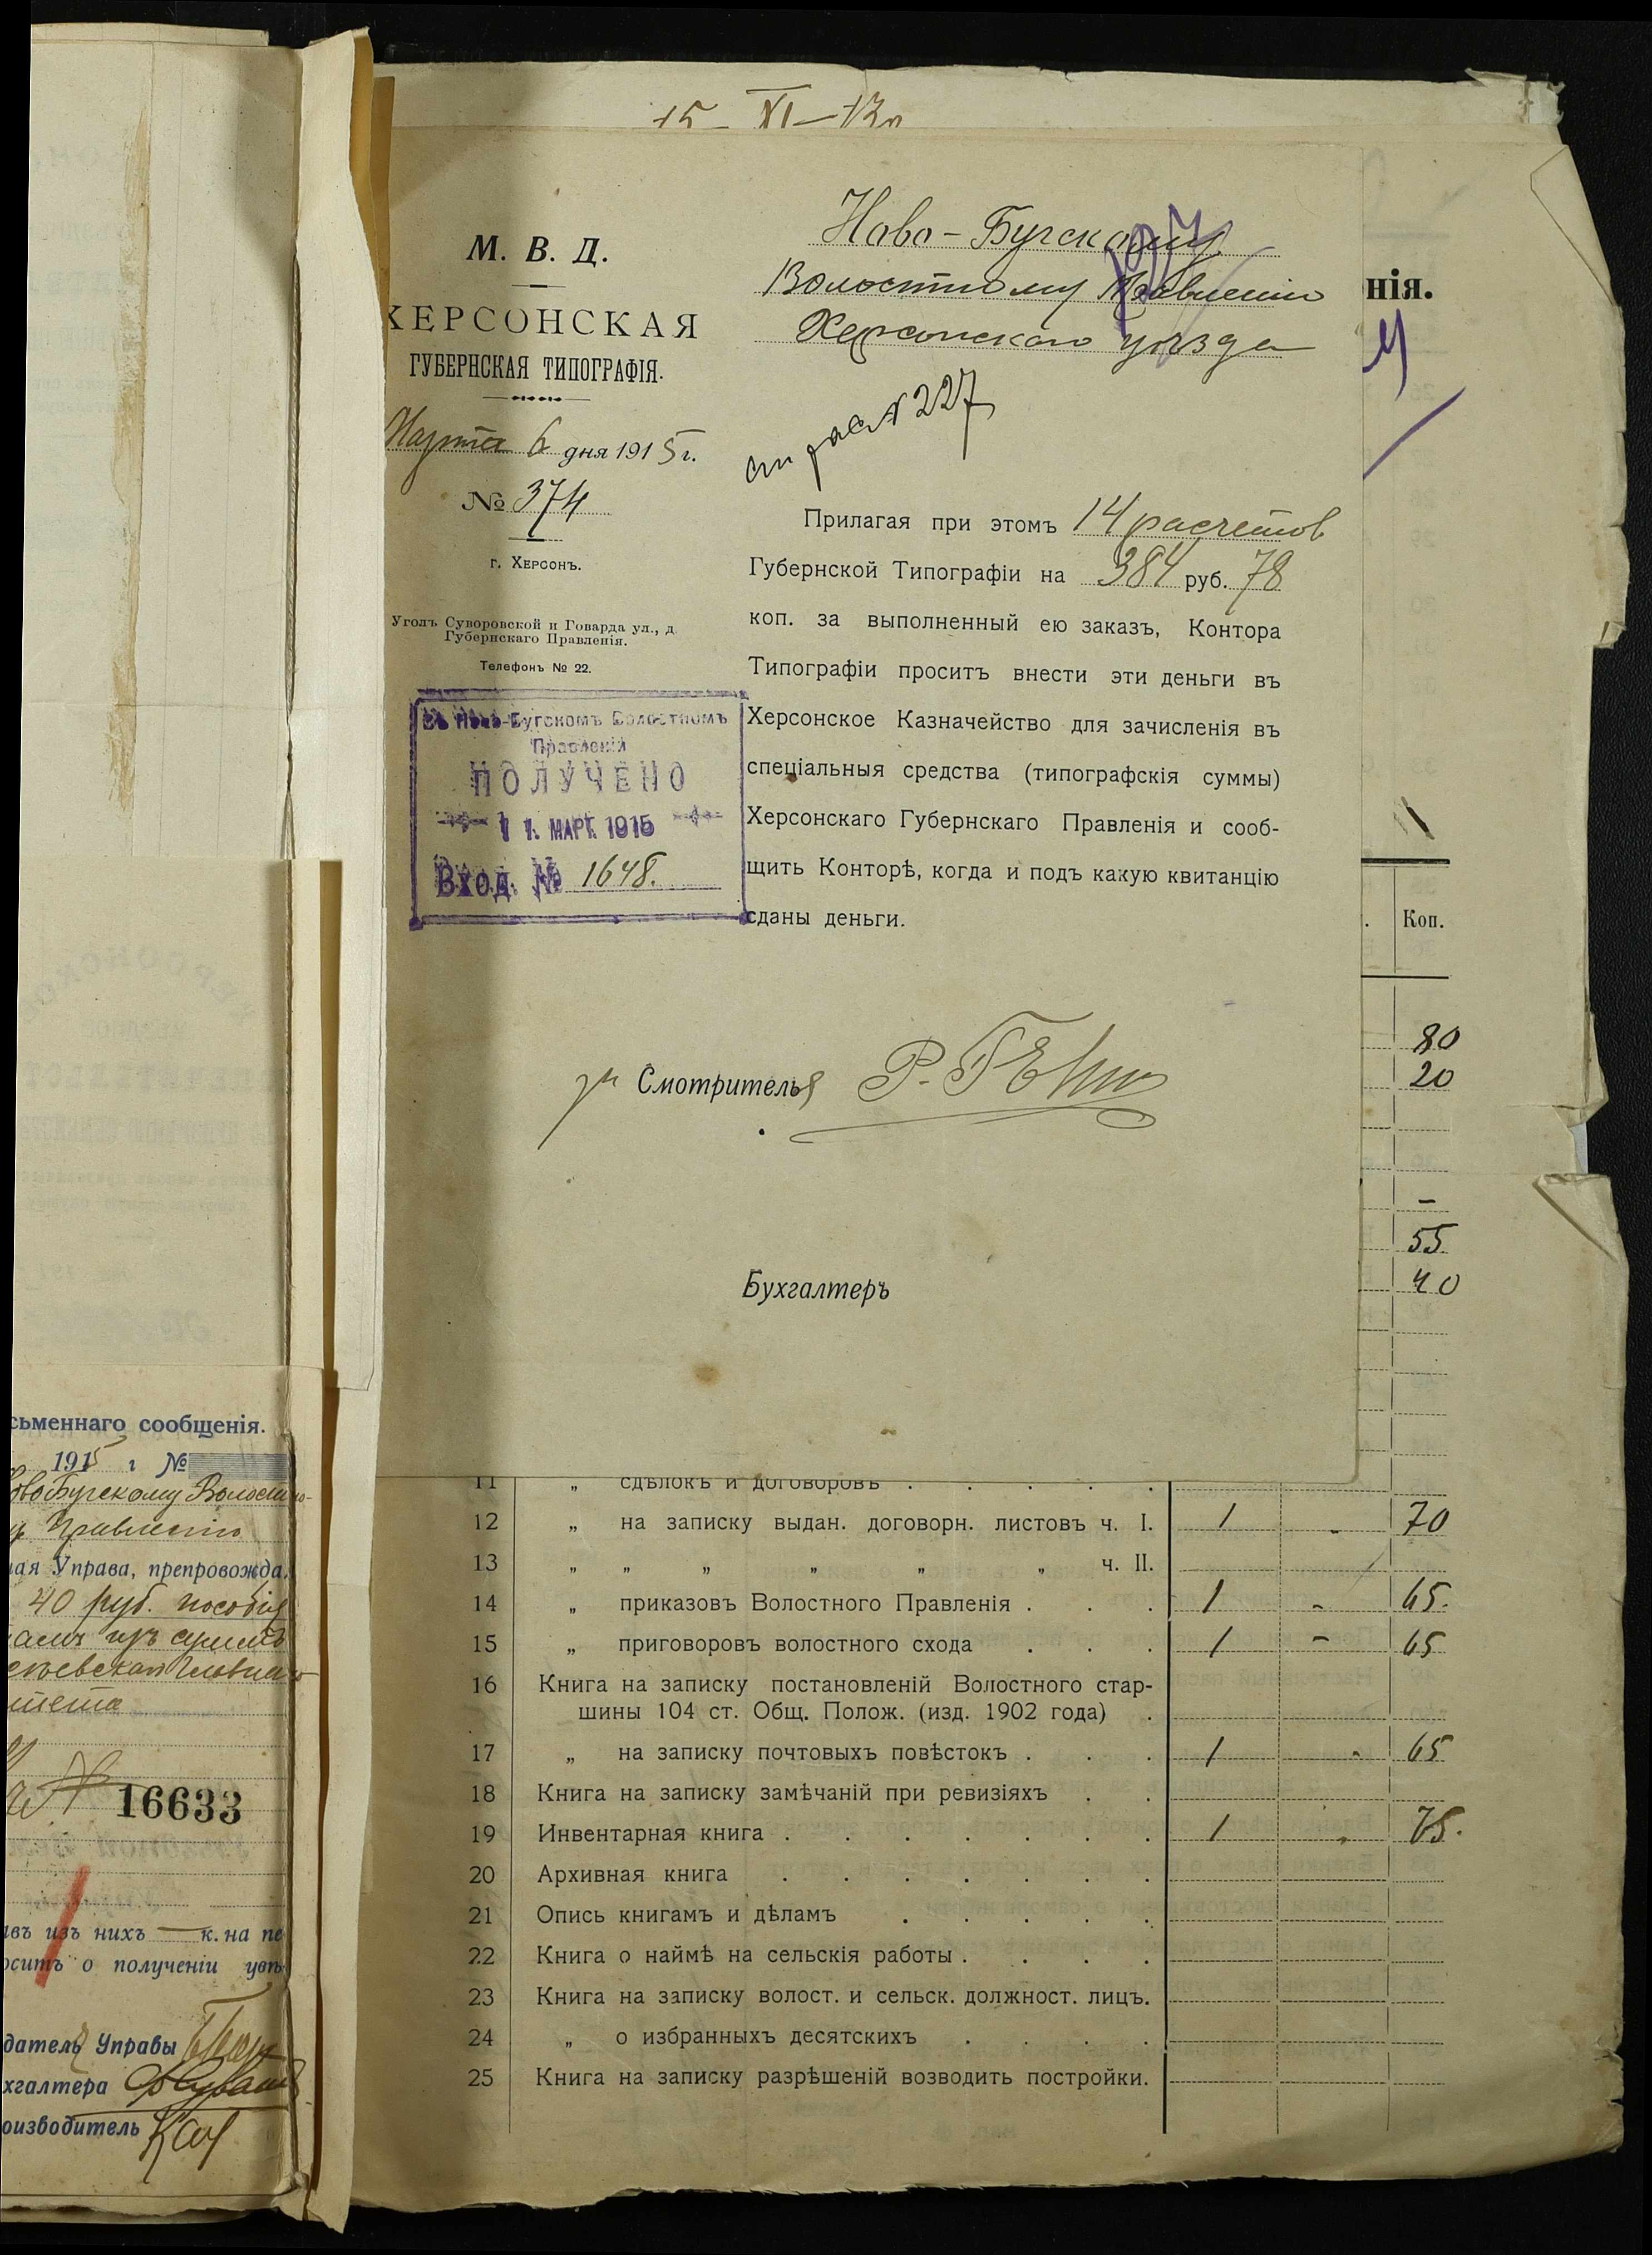 15 XI
М. В. Д.
ХЕРСОНСКАЯ
ГУБЕРНСКАЯ ТИПОГРАФІЯ.
Марта 6 дня 1915 г.
№ 374
г. Херсонъ.
Уголъ Суворовской и Говарда ул., д.
Губернскаго Правленія.
Телефонъ № 22.
Въ Ново-Бугскомъ Волостномъ
Правленіи
ПОЛУЧЕНО
11. МАР. 1915
Вход. № 1648.
Ново-Бугскому
Волостному Правленію
Херсонскаго уѣзда
227
Прилагая при этомъ 14 расчетов
Губернской Типографіи на 384 руб. 78
коп. за выполненный ею заказъ, Контора
Типографіи проситъ внести эти деньги въ
Херсонское Казначейство для зачисленія въ
спеціальныя средства (типографскія суммы)
Херсонскаго Губернскаго Правленія и сооб-
щить Конторѣ, когда и подъ какую квитанцію
сданы деньги.
за Смотрителя
Бухгалтеръ
нія.
Коп.
80
20
-
55
40
11 „ сдѣлокъ и договоровъ . . . . .
12 „ на записку выдан. договорн. листовъ ч. I. 1 - 70
13 „ „ „ „ „ „ ч. II.
14 „ приказовъ Волостного Правленія . . . 1 - 65.
15 „ приговоровъ волостного схода . . . 1 - 65
16 Книга на записку постановленій Волостного стар-
шины 104 ст. Общ. Полож. (изд. 1902 года) .
17 „ на записку почтовыхъ повѣстокъ . . . 1 - 65
18 Книга на записку замѣчаній при ревизіяхъ . .
19 Инвентарная книга . . . . . . . 1 - 75.
20 Архивная книга . . . . . . .
21 Опись книгамъ и дѣламъ . . . . .
22 Книга о наймѣ на сельскія работы . . . .
23 Книга на записку волост. и сельск. должност. лицъ.
24 „ о избранныхъ десятскихъ . . . .
25 Книга на записку разрѣшеній возводить постройки.
сьменнаго сообщенія.
1915 г №
овоБугскому Волостно-
у Правленію
ная Управа, препровожда.
40 руб. пособія
16633
авъ изъ нихъ — к. на пе
оситъ о полученіи увѣ
датель Управы
хгалтера
оизводитель